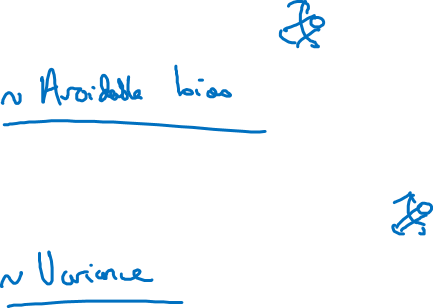 ~ Avoidable bias
~ Variance